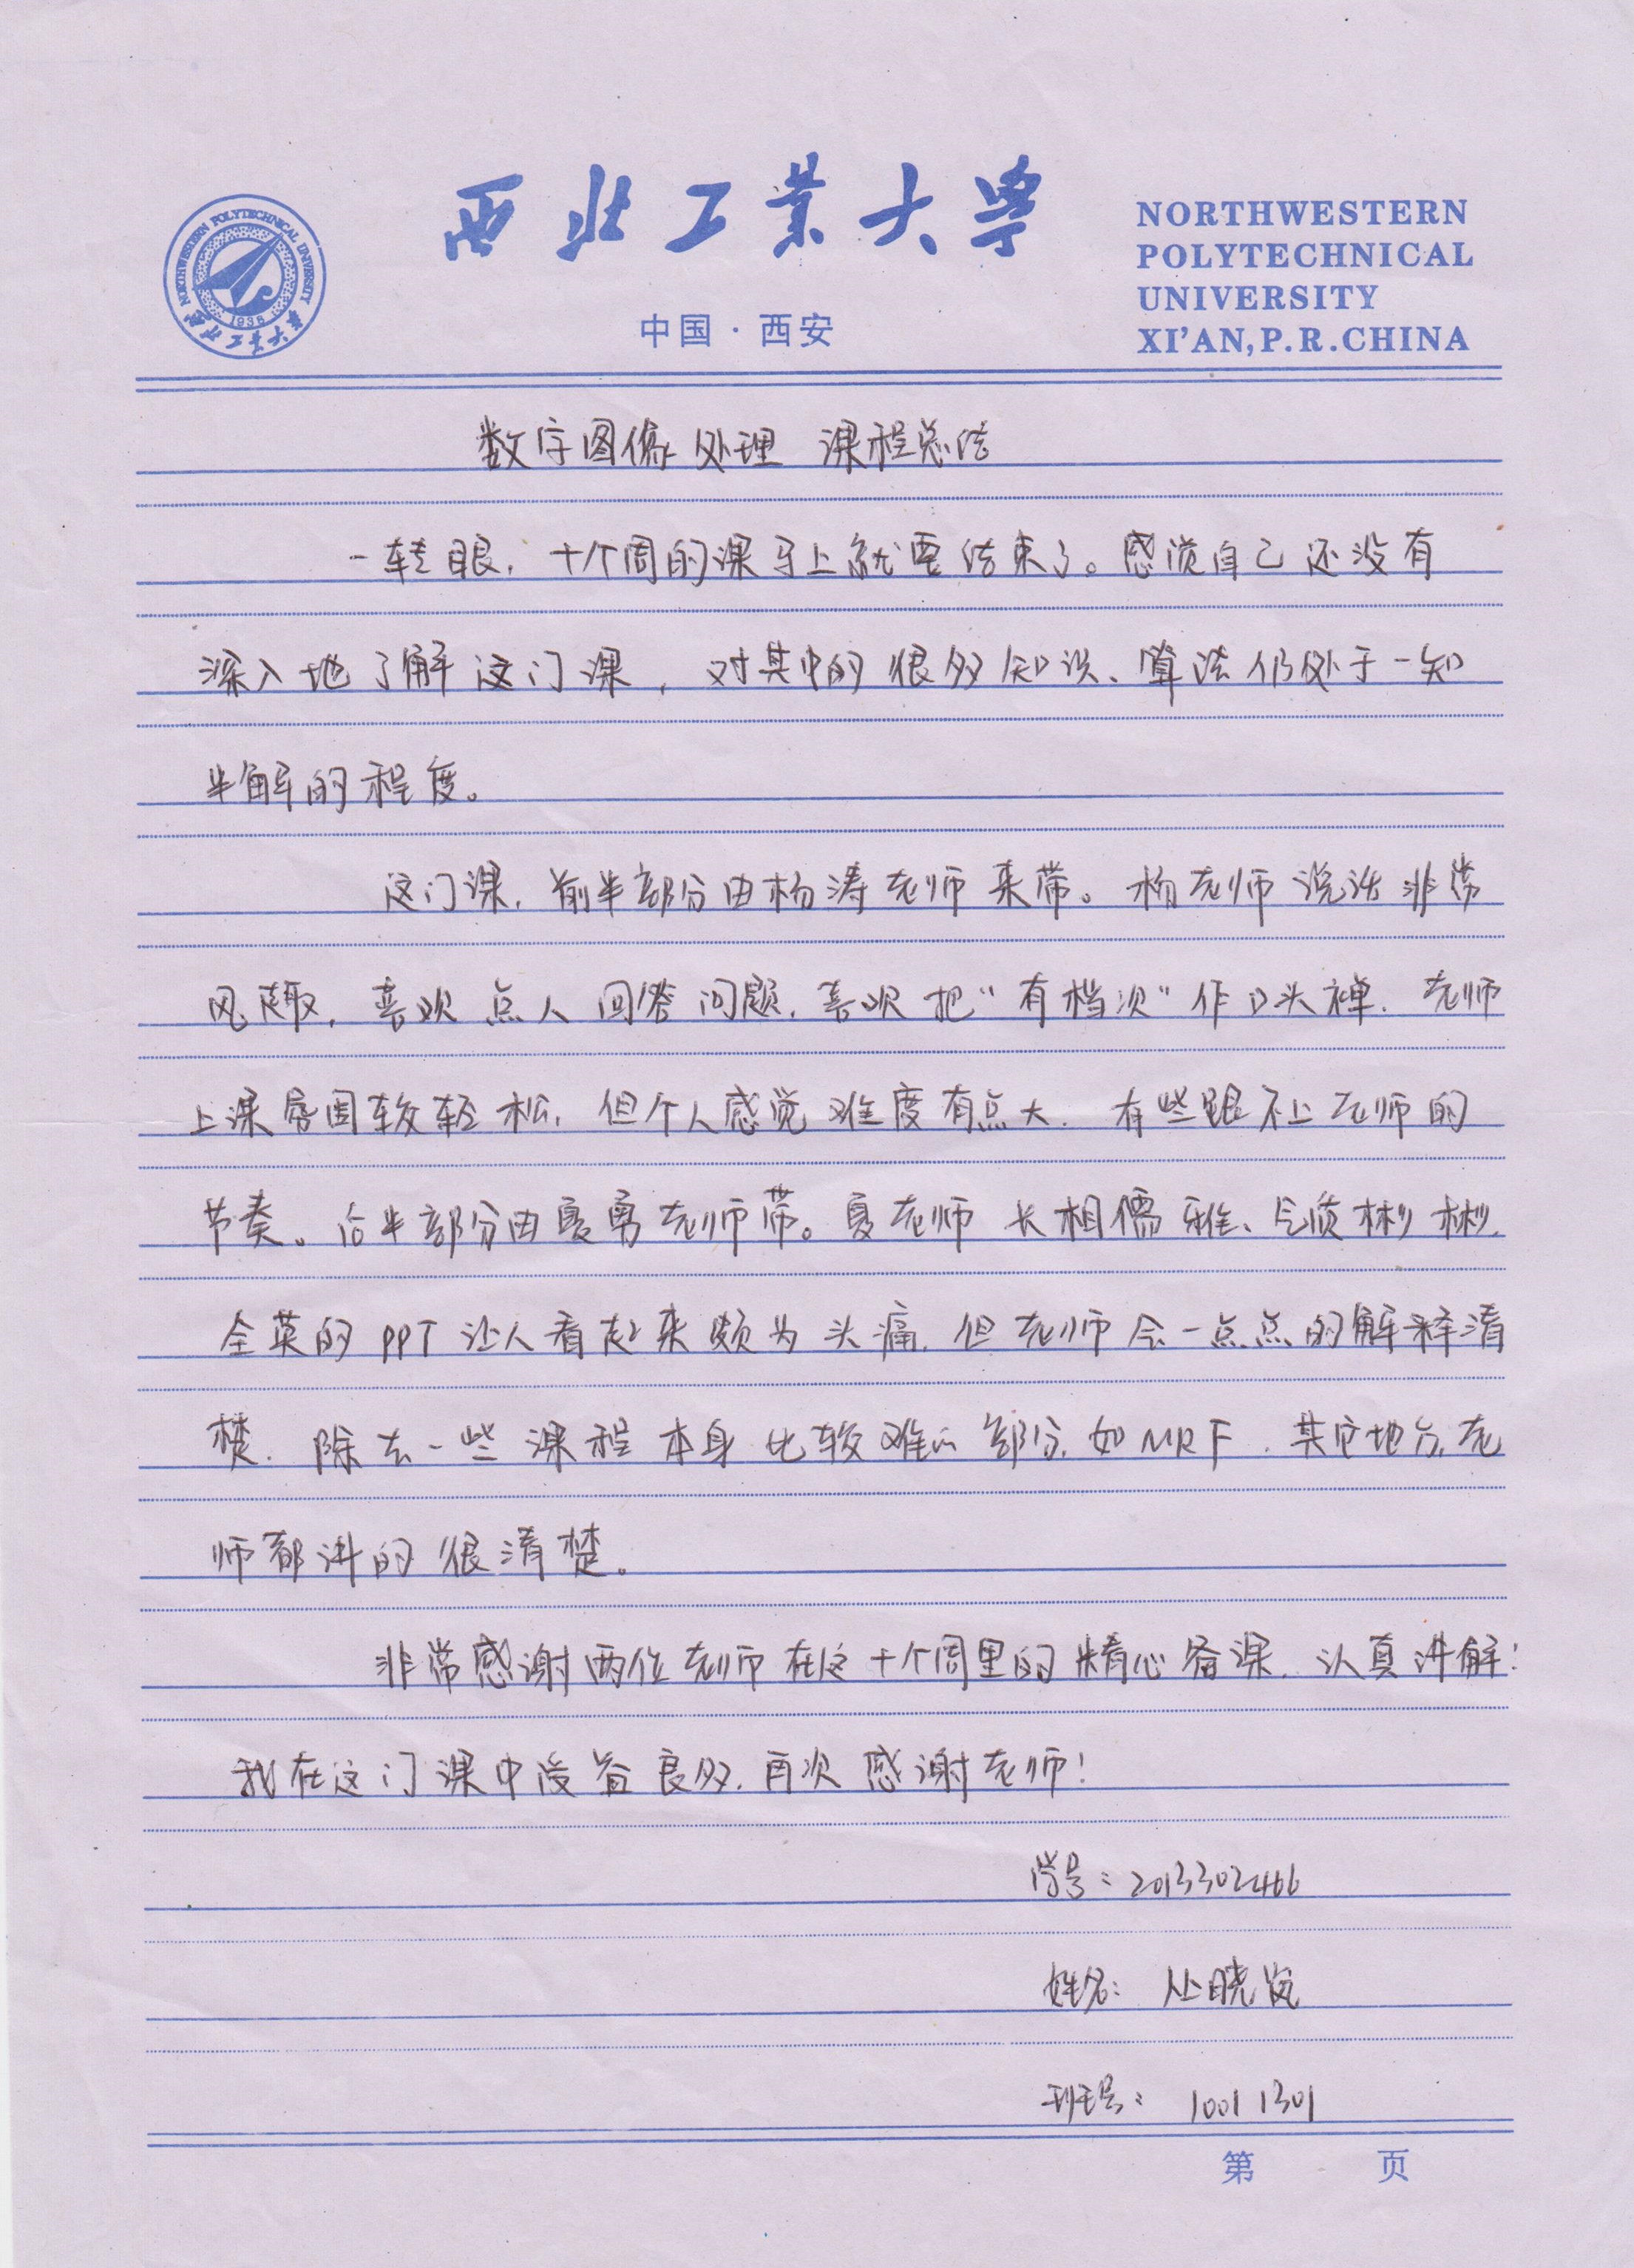 西北工业大学
中国·西安
NORTHWESTERN
POLYTECHNICAL
UNIVERSITY
XI'AN, P.R.CHINA
NORTHWESTERN POLYTECHNICAL UNIVERSITY
1938
西北工业大学
数字图像处理 课程总结
一转眼，十个周的课马上就要结束了。感觉自己还没有
深入地了解这门课，对其中的很多知识、算法仍处于一知
半解的程度。
这门课，前半部分由杨涛老师来带。杨老师说话非常
风趣，喜欢点人回答问题，喜欢把“有档次”作口头禅．老师
上课氛围较轻松，但个人感觉难度有点大．有些跟不上老师的
节奏。后半部分由夏勇老师带。夏老师长相儒雅、气质彬彬．
全英的PPT让人看起来颇为头痛，但老师会一点点的解释清
楚．除去一些课程本身比较难的部分，如MRF，其它地方，老
师都讲的很清楚。
非常感谢两位老师在这十个周里的精心备课，认真讲解！
我在这门课中受益良多，再次感谢老师！
学号：2013302466
姓名：丛晓
班号：10011301
第 页